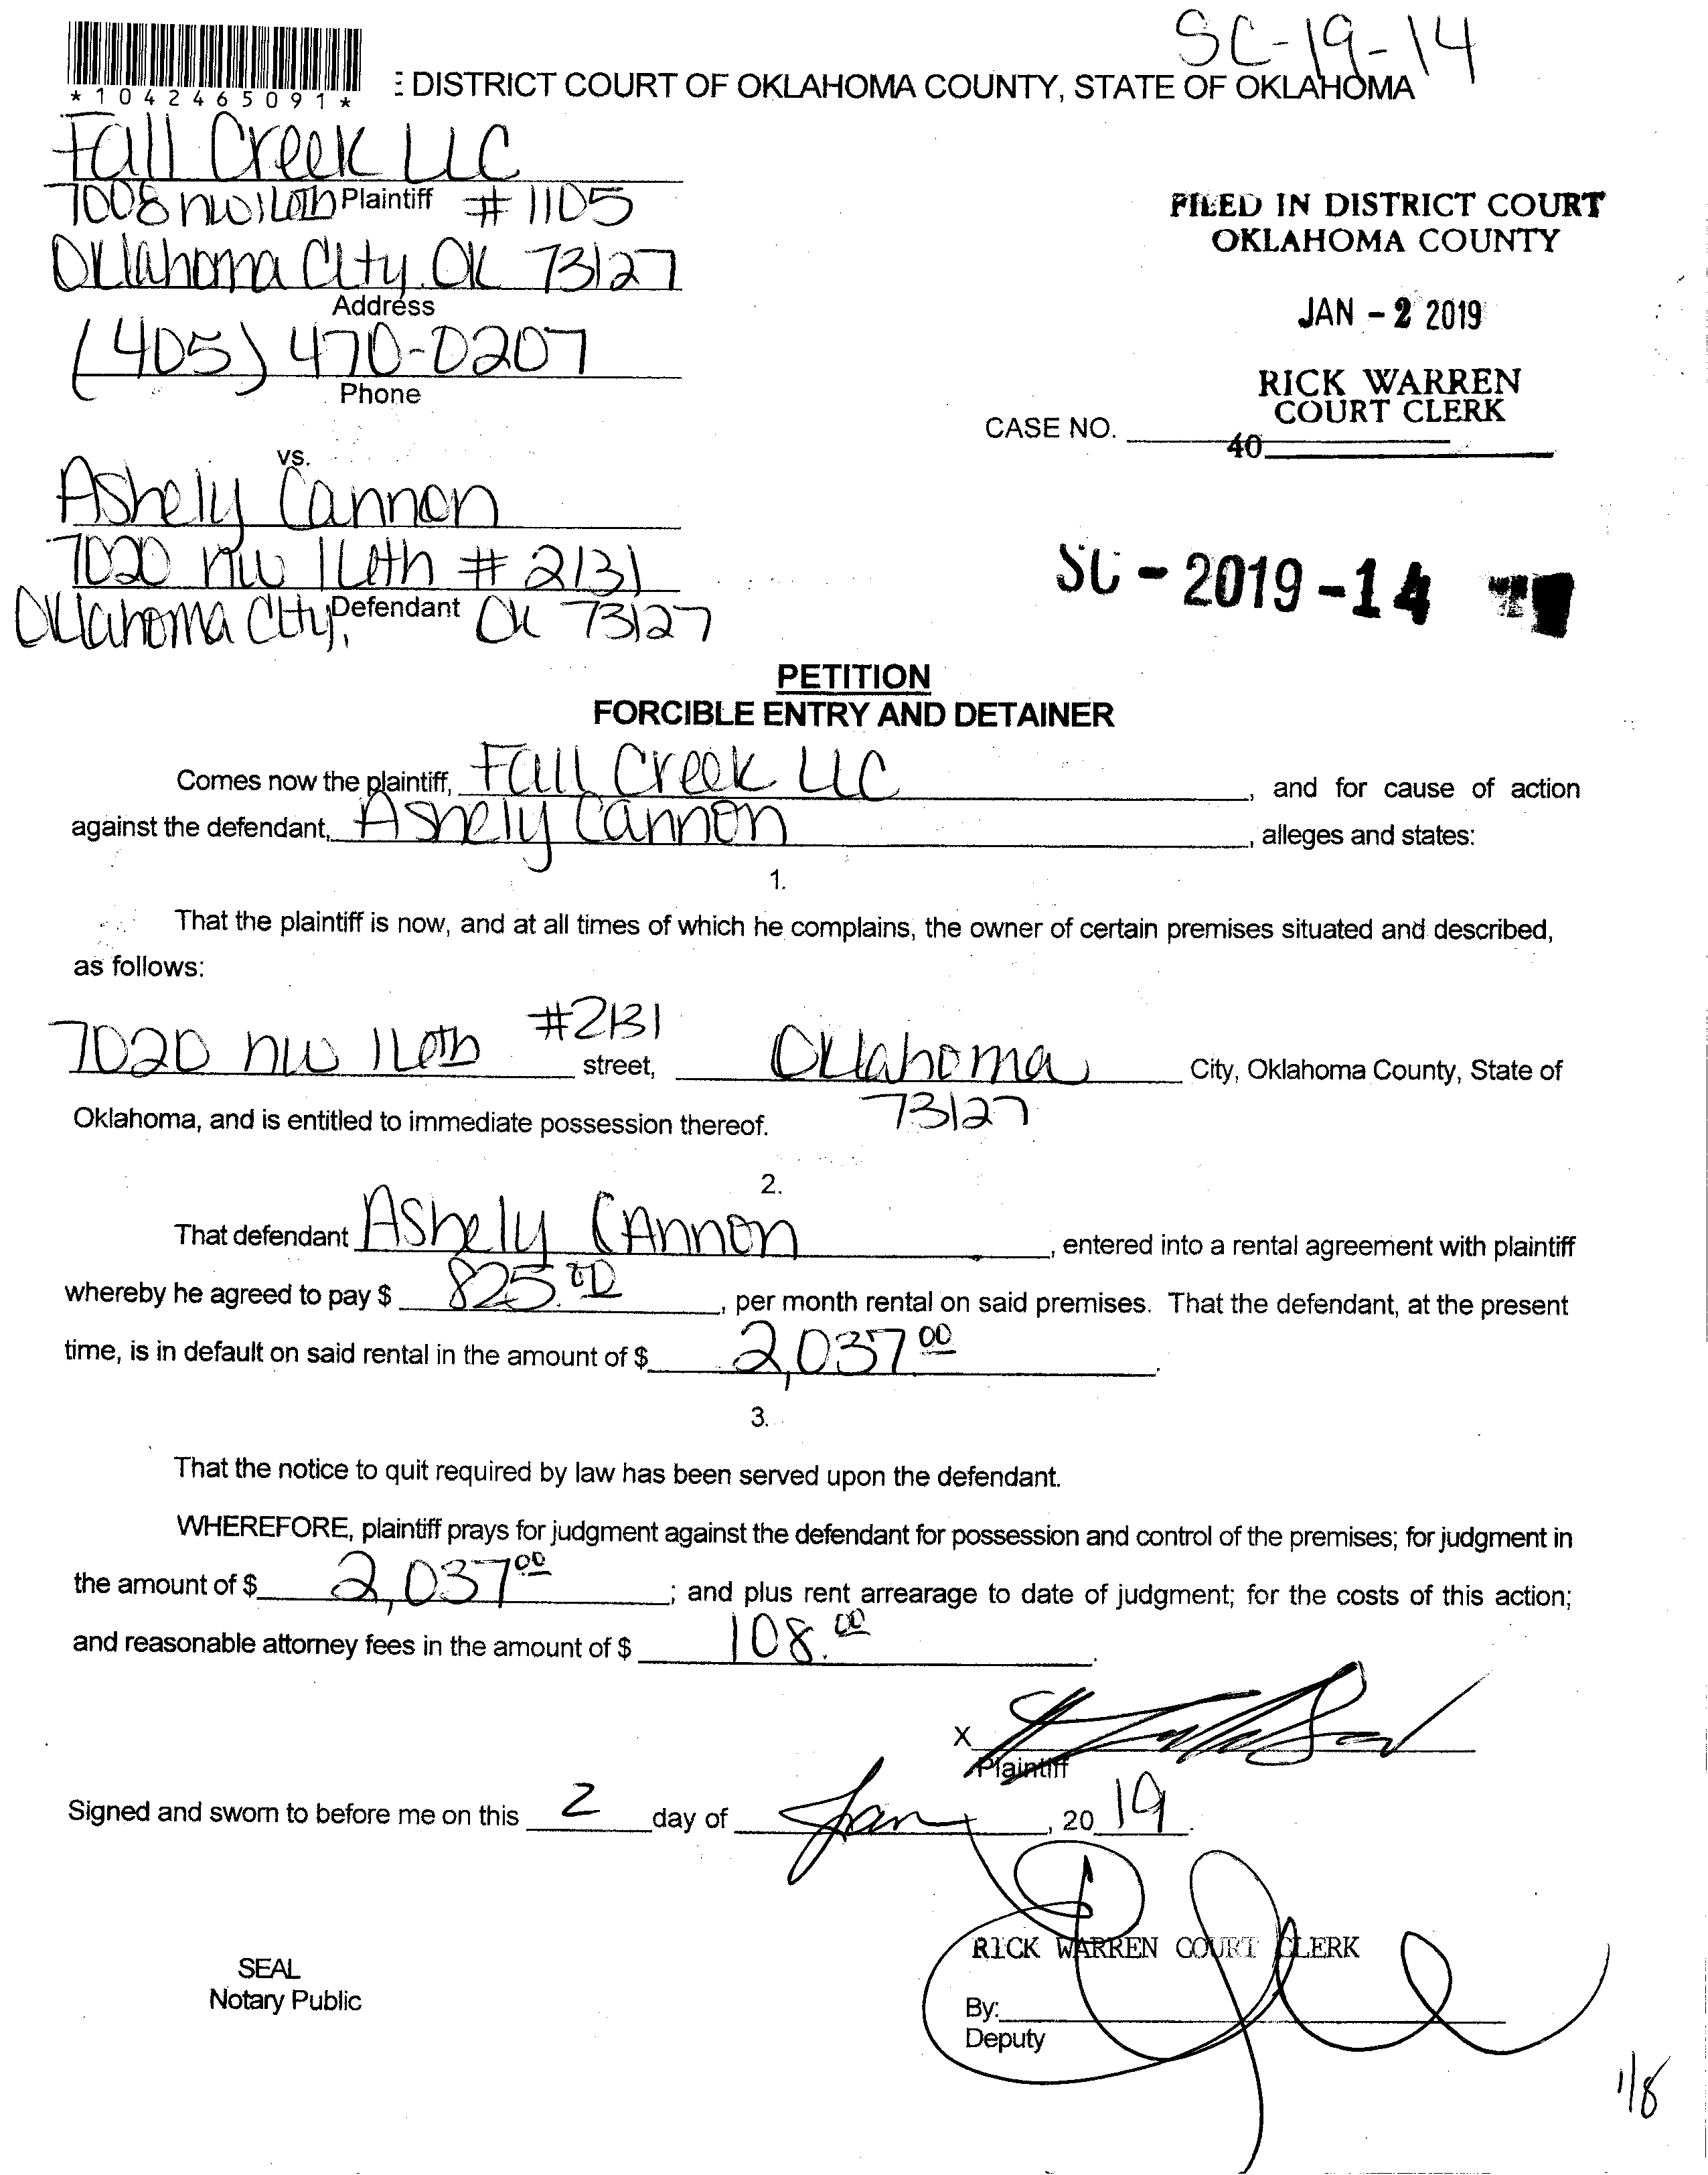 SC-19-14
*1042465091*
E DISTRICT COURT OF OKLAHOMA COUNTY, STATE OF OKLAHOMA
Fall Creek LLC
7008 NW 16th Plaintiff # 1105
Oklahoma City, OK 73127
Address
(405) 470-0207
Phone
FILED IN DISTRICT COURT
OKLAHOMA COUNTY
JAN - 2 2019
RICK WARREN
COURT CLERK
CASE NO.
40
vs.
Ashely Cannon
7020 NW 16th # 2131
Defendant
Oklahoma City, OK 73127
SC - 2019 - 14
PETITION
FORCIBLE ENTRY AND DETAINER
Comes now the plaintiff, Fall Creek LLC, and for cause of action
against the defendant, Ashely Cannon, alleges and states:
1.
That the plaintiff is now, and at all times of which he complains, the owner of certain premises situated and described,
as follows:
7020 NW 16th #2131 street, Oklahoma City, Oklahoma County, State of
73127
Oklahoma, and is entitled to immediate possession thereof.
2.
That defendant Ashely Cannon, entered into a rental agreement with plaintiff
whereby he agreed to pay $ 825.00, per month rental on said premises. That the defendant, at the present
time, is in default on said rental in the amount of $ 2,037 00.
3.
That the notice to quit required by law has been served upon the defendant.
WHEREFORE, plaintiff prays for judgment against the defendant for possession and control of the premises; for judgment in
the amount of $ 2,037 00; and plus rent arrearage to date of judgment; for the costs of this action;
and reasonable attorney fees in the amount of $ 108.00.
X
Plaintiff
Signed and sworn to before me on this 2 day of Jan, 20 19.
RICK WARREN COURT CLERK
SEAL
Notary Public
By:
Deputy
1/8